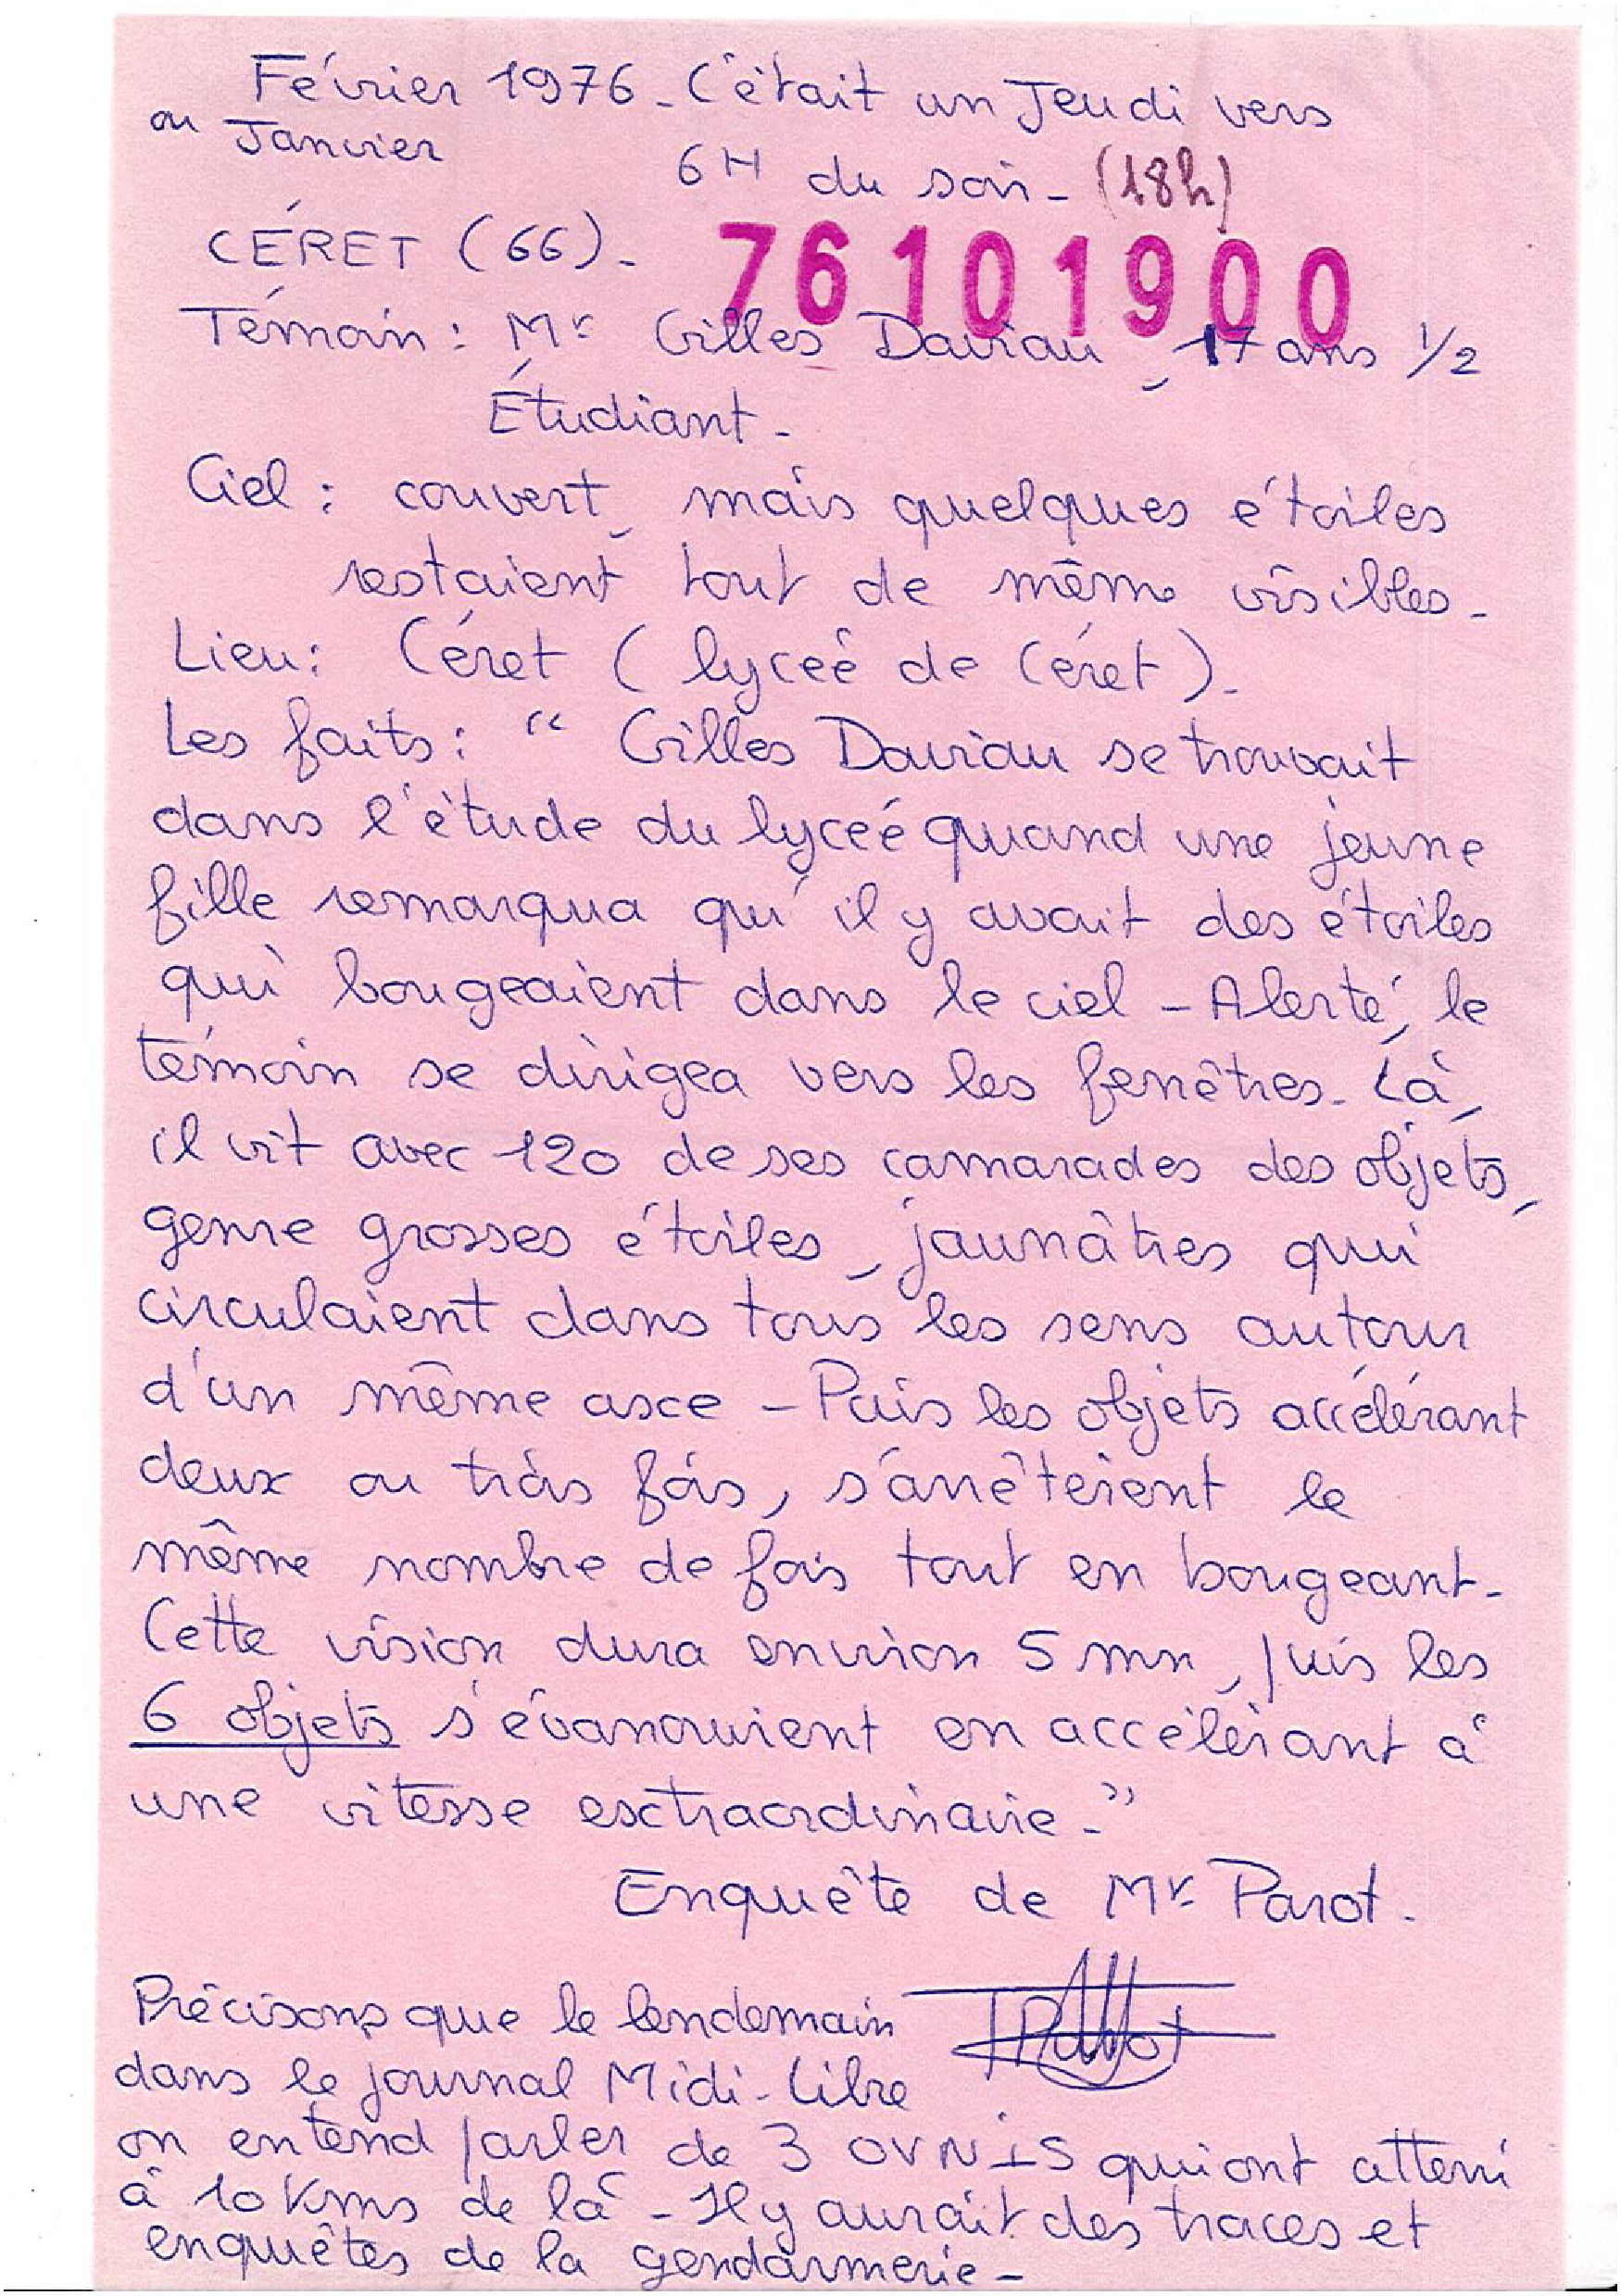 Février 1976 - C'était un Jeudi vers
ou Janvier
6H du soir - (18h)
CÉRET (66) -
76101900
Témoin : Mr Gilles Daviau, 17 ans 1/2
Étudiant -
Ciel : couvert, mais quelques étoiles
restaient tout de même visibles -
Lieu : Céret (lyceé de Céret) -
Les faits : " Gilles Daviau se trouvait
dans l'étude du lyceé quand une jeune
fille remarqua qu'il y avait des étoiles
qui bougeaient dans le ciel - Alerté, le
témoin se dirigea vers les fenêtres - Là,
il vit avec 120 de ses camarades des objets,
genre grosses étoiles, jaunâtres qui
circulaient dans tous les sens autour
d'un même axe - Puis les objets accélérant
deux ou trois fois, s'arrêterent le
même nombre de fois tout en bougeant -
Cette vision dura environ 5 mn, puis les
6 objets s'évanouirent en accélérant à
une vitesse extraordinaire - "
Enquête de Mr Parot.
Précisons que le lendemain
dans le journal Midi-Libre
on entend parler de 3 OVNIS qui ont atterri
à 10 Kms de là - Il y aurait des traces et
enquêtes de la gendarmerie -